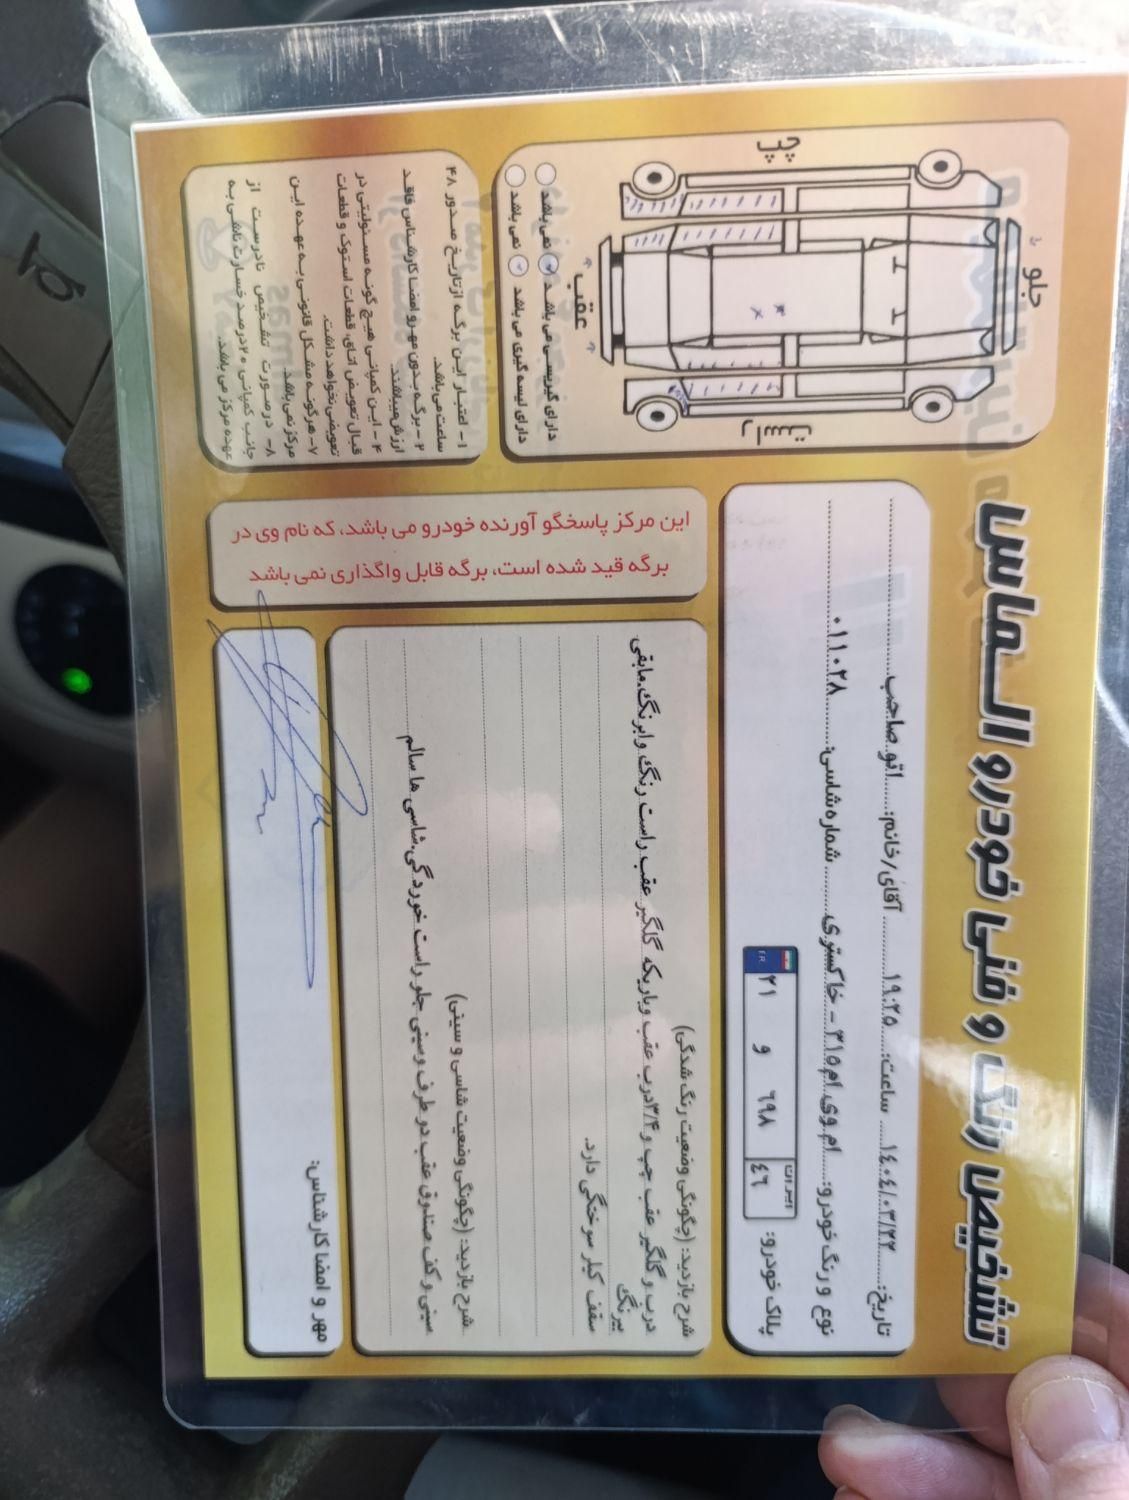 تشخیص رنگ و فنی خودرو الـمـاس
تاریخ: ۱۴۰۴/۰۳/۲۲ ساعت: ۱۹:۲۵ آقای/خانم: اتو صاحب
نوع و رنگ خودرو: ام وی ام ۳۱۵ - خاکستری شماره شاسی: ۰۱۱۰۲۸
پلاک خودرو: ۲۱ و ۶۹۸ ایران ۴۶
شرح بازدید: (چگونگی وضعیت رنگ شدگی)
درب و گلگیر عقب چپ و ۳/۴درب عقب وباریکه گلگیر عقب راست رنگ وابرنگ.مابقی
بیرنگ
سقف کیلر سوختگی دارد.
شرح بازدید: (چگونگی وضعیت شاسی و سینی)
سینی و کف صندوق عقب دو طرف وسینی جلو راست خوردگی.شاسی ها سالم
مهر و امضا کارشناس:
جلو
چپ
راست
عقب
دارای گیربسی می باشد نمی باشد
دارای لیسه گیری می باشد نمی باشد
۱- اعتبار این برگه از تاریخ صدور ۴۸
ساعت می باشد.
۲- برگه بدون مهر و امضا کارشناس فاقد
ارزش میباشد
۴- این کمپانی هیچ گونه مسئولیتی در
قبال تعویض اتاق، قطعات استوک و قطعات
تعویضی نخواهد داشت.
۷- هرگونه مشکل قانونی به عهده این
مرکز نمی باشد
۸- درصورت تشخیص نادرست از
جانب کمپانی ۲۰درصد خسارت ناشی به
عهده مرکز می باشد.
این مرکز پاسخگو آورنده خودرو می باشد، که نام وی در
برگه قید شده است، برگه قابل واگذاری نمی باشد